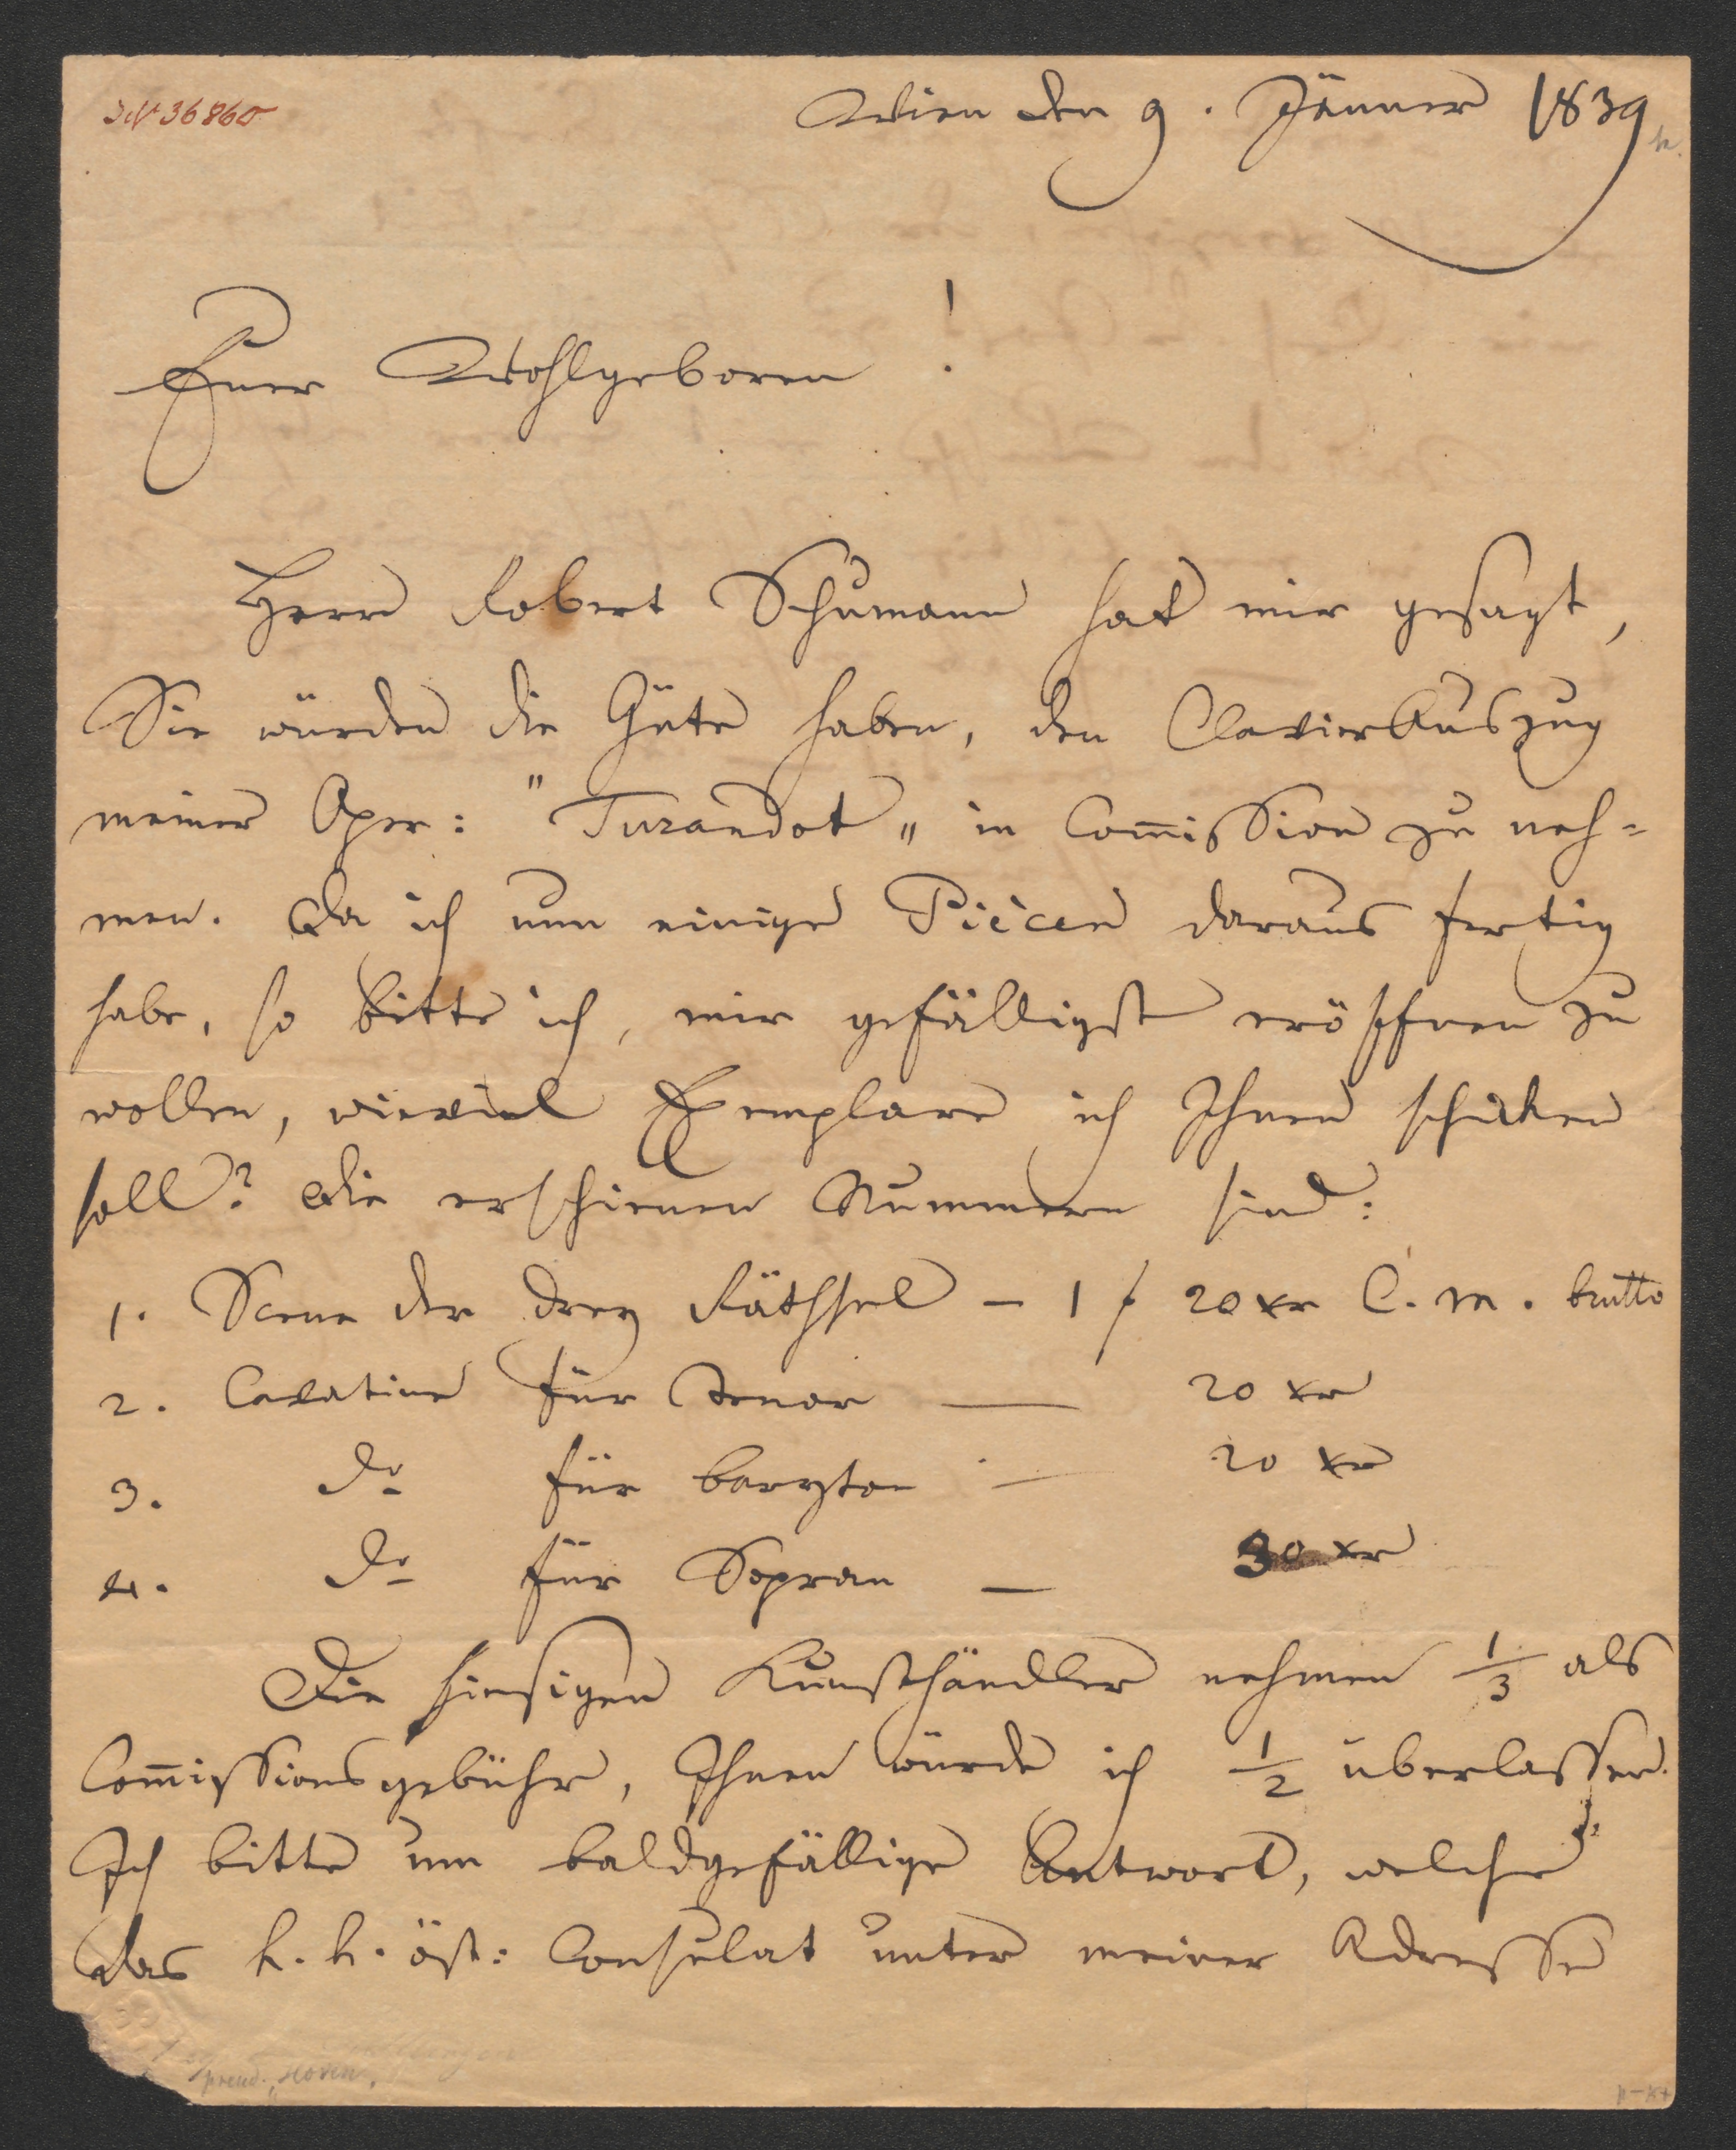 JN 36860
Wien den 9. Jänner 1839
Euer Wohlgeboren!
Herr Robert Schumann hat mir gesagt,
Sie würden die Güte haben, den ClavierAuszug
meiner Oper: "Turandot" in Commission zu neh=
men. Da ich nun einige Piècen daraus fertig
habe, so bitte ich, mir gefälligst eröffnen zu
wollen, wieviel Exemplare ich Ihnen schicken
soll? Die erschienen Nummern sind:
1. Scene der drey Räthsel — 1 f 20 xr C. M. brutto
2. Cavatine für Tenor — 20 xr
3. do für Baryton — 20 xr
4. do für Sopran — 30 xr
Die hiesigen Kunsthändler nehmen 1/3 als
Commissionsgebühr, Ihnen würde ich 1/2 überlassen.
Ich bitte um baldgefällige Antwort, welche
das k. k. öst: Consulat unter meiner Adresse
pseud. "Hoven"